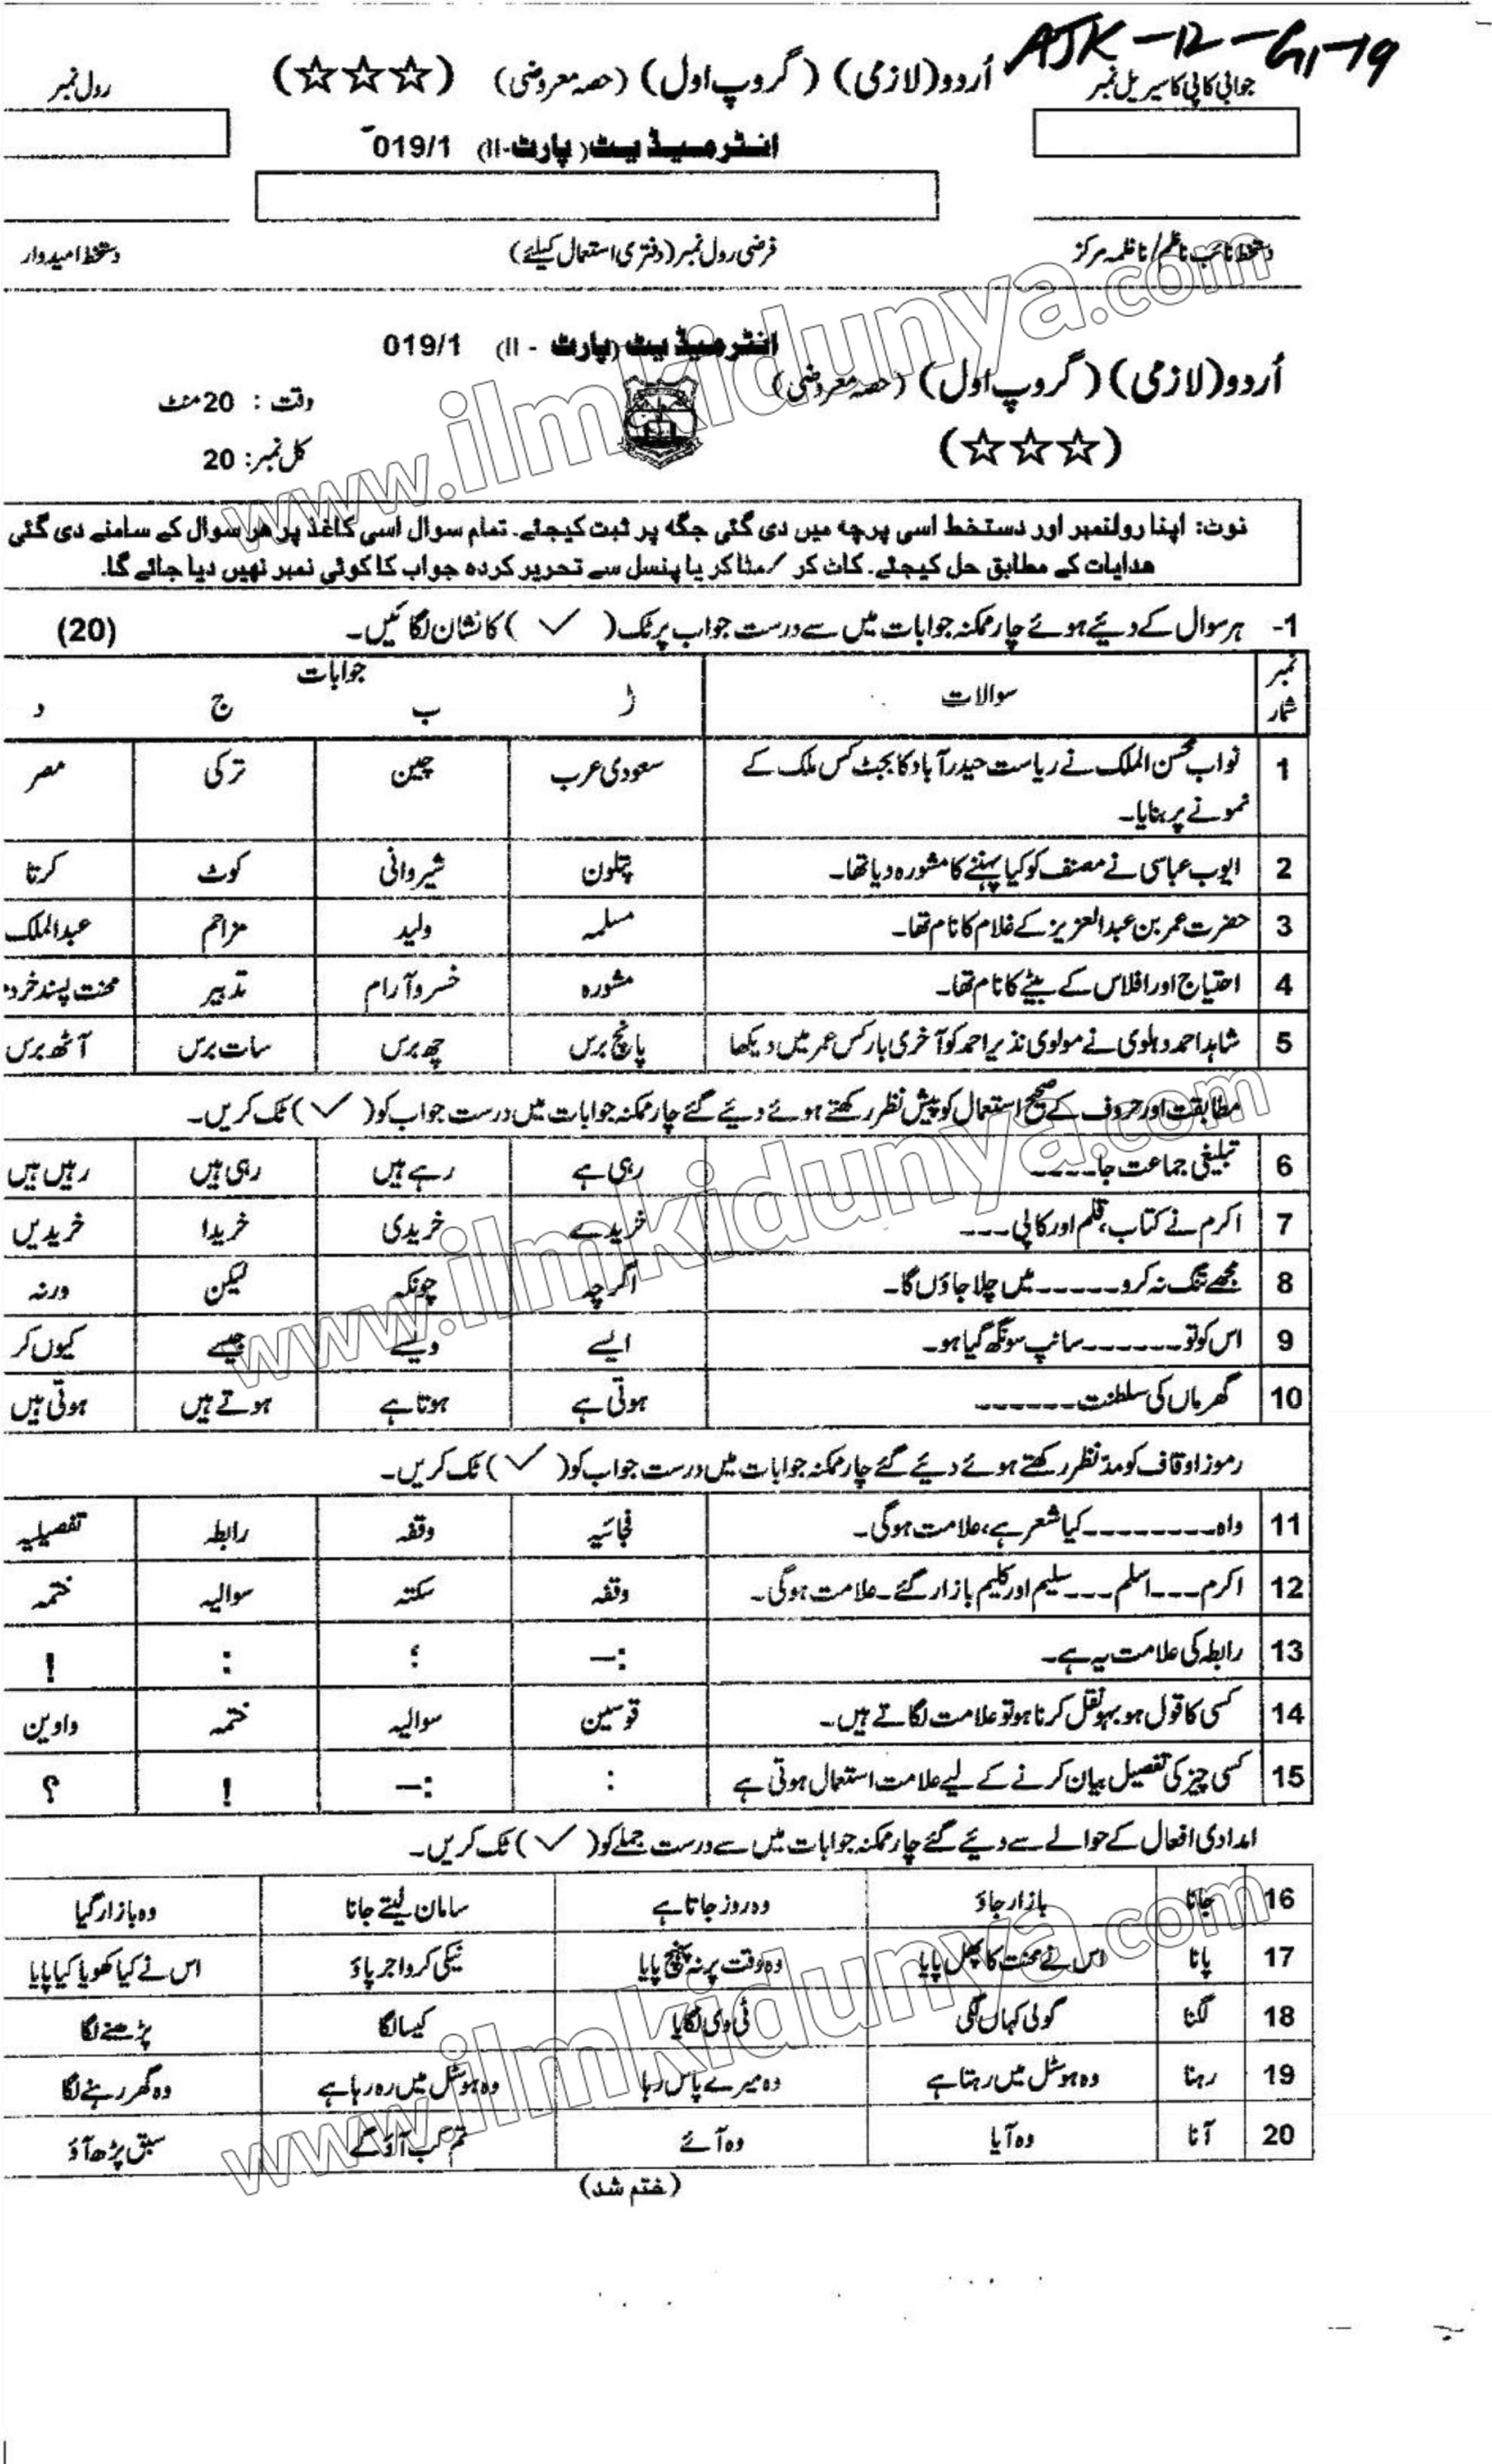 AJK-12-G1-19
اُردو(لازمی) (گروپ اول) (حصہ معروضی) (☆☆☆)
جوابی کاپی کا سیریل نمبر
رول نمبر
انٹرمیڈیٹ (پارٹ-II) 019/1
دستخط نائب ناظم/ناظمہ مرکز
فرضی رول نمبر (دفتری استعمال کیلئے)
دستخط امیدوار
انٹرمیڈیٹ (پارٹ - II) 019/1
اُردو(لازمی) (گروپ اول) (حصہ معروضی)
وقت : 20 منٹ
(☆☆☆)
کل نمبر: 20
نوٹ: اپنا رولنمبر اور دستخط اسی پرچہ میں دی گئی جگہ پر ثبت کیجئے۔ تمام سوال اسی کاغذ پر ہر سوال کے سامنے دی گئی
ہدایات کے مطابق حل کیجئے۔ کاٹ کر /مٹا کر یا پنسل سے تحریر کردہ جواب کا کوئی نمبر نہیں دیا جائے گا۔
1- ہر سوال کے دئیے ہوئے چار ممکنہ جوابات میں سے درست جواب پر ٹک ( ✓ ) کا نشان لگائیں۔ (20)
نمبر شمار سوالات جوابات
ا ب ج د
1 نواب محسن الملک نے ریاست حیدر آباد کا بجٹ کس ملک کے سعودی عرب چین ترکی مصر
نمونے پر بنایا۔
2 ایوب عباسی نے مصنف کو کیا پہننے کا مشورہ دیا تھا۔ پتلون شیروانی کوٹ کرتا
3 حضرت عمر بن عبدالعزیز کے غلام کا نام تھا۔ مسلمہ ولید مزاحم عبدالملک
4 احتیاج اور افلاس کے بیٹے کا نام تھا۔ مشورہ خسرو آرام تدبیر محنت پسند خرد
5 شاہد احمد دہلوی نے مولوی نذیر احمد کو آخری بار کس عمر میں دیکھا پانچ برس چھ برس سات برس آٹھ برس
مطابقت اور حروف کے صحیح استعمال کو پیش نظر رکھتے ہوئے دئیے گئے چار ممکنہ جوابات میں درست جواب کو ( ✓ ) ٹک کریں۔
6 تبلیغی جماعت جا----- رہی ہے رہے ہیں رہی ہیں رہیں ہیں
7 اکرم نے کتاب، قلم اور کاپی --- خریدے خریدی خریدا خریدیں
8 مجھے تنگ نہ کرو ------ میں چلا جاؤں گا۔ اگرچہ چونکہ لیکن ورنہ
9 اس کو تو ------- سانپ سونگھ گیا ہو۔ ایسے ویسے جیسے کیوں کر
10 گھر ماں کی سلطنت ------ ہوتی ہے ہوتا ہے ہوتے ہیں ہوتی ہیں
رموز اوقاف کو مدنظر رکھتے ہوئے دئیے گئے چار ممکنہ جوابات میں درست جواب کو ( ✓ ) ٹک کریں۔
11 واہ --------- کیا شعر ہے، علامت ہوگی۔ فجائیہ وقفہ رابطہ تفصیلیہ
12 اکرم --- اسلم --- سلیم اور کلیم بازار گئے۔ علامت ہوگی۔ وقفہ سکتہ سوالیہ ختمہ
13 رابطہ کی علامت یہ ہے۔ :— ؛ : !
14 کسی کا قول ہو بہو نقل کرنا ہو تو علامت لگاتے ہیں۔ قوسین سوالیہ ختمہ واوین
15 کسی چیز کی تفصیل بیان کرنے کے لیے علامت استعمال ہوتی ہے : :— ! ؟
امدادی افعال کے حوالے سے دئیے گئے چار ممکنہ جوابات میں سے درست جملے کو ( ✓ ) ٹک کریں۔
16 جانا بازار جاؤ وہ روز جاتا ہے سامان لیتے جانا وہ بازار گیا
17 پانا اس نے محنت کا پھل پایا وہ وقت پر نہ پہنچ پایا نیکی کرو اجر پاؤ اس نے کیا کھویا کیا پایا
18 لگنا گولی کہاں لگی ٹی وی لگایا کیسا لگا پڑھنے لگا
19 رہنا وہ ہوسٹل میں رہتا ہے وہ میرے پاس رہا وہ ہوسٹل میں رہ رہا ہے وہ گھر رہنے لگا
20 آنا وہ آیا وہ آئے تم کب آؤ گے سبق پڑھ آؤ
(ختم شد)
www.ilmkidunya.com
www.ilmkidunya.com
www.ilmkidunya.com